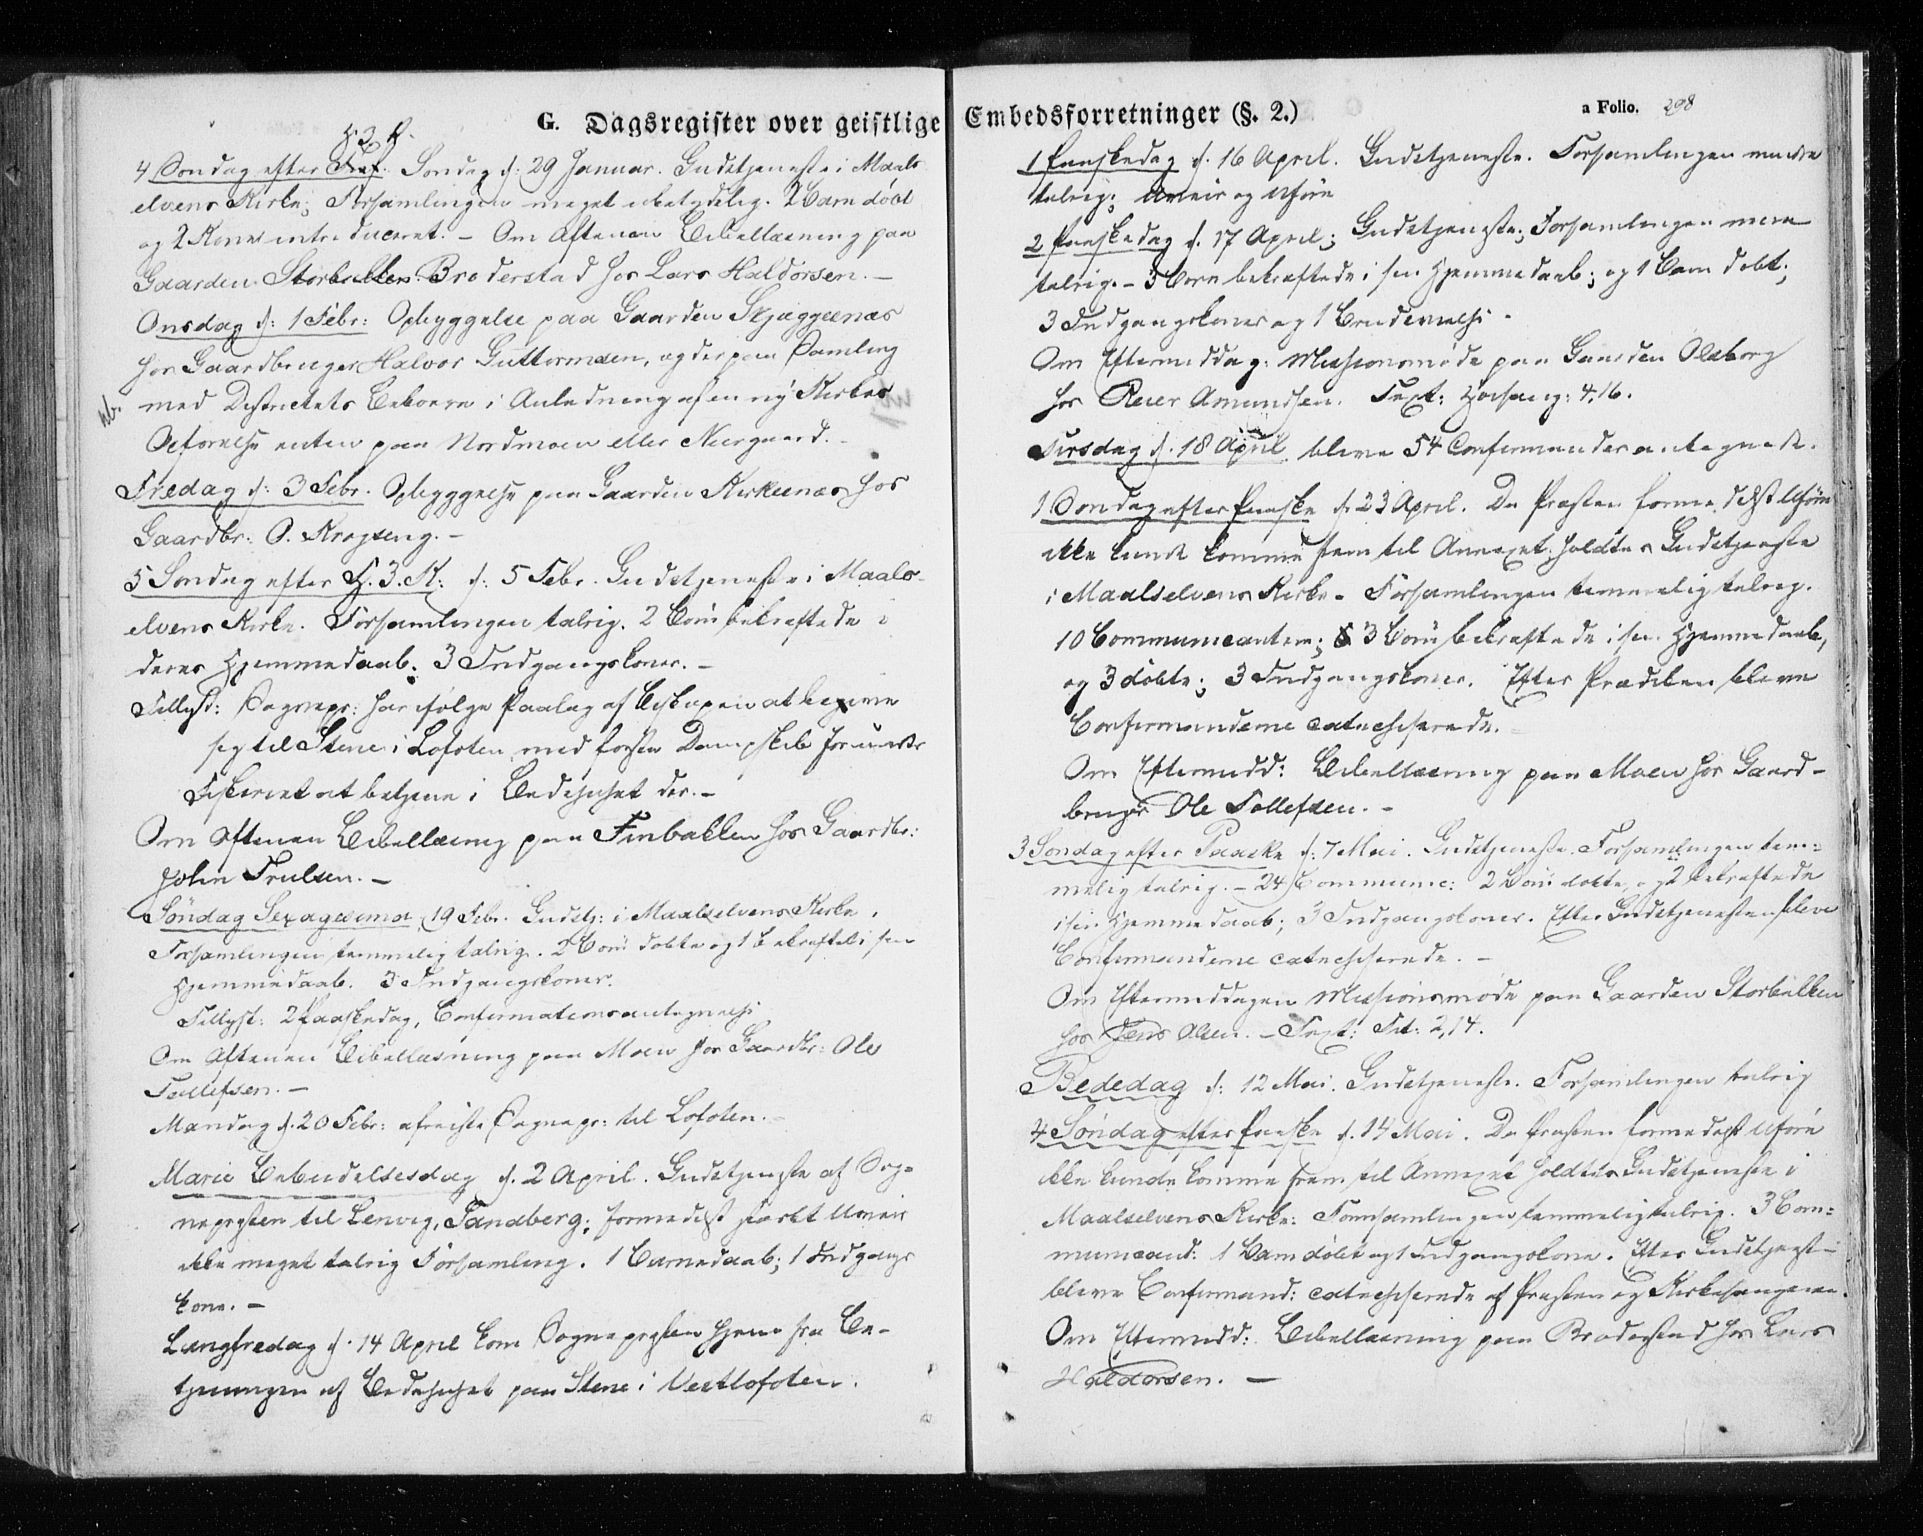 G. Dagsregister over geistlige Embedsforretninger (§. 2.)
a Folio. 298
H 3 K.
4 Søndag efter Søndag d: 29 Januar. Gudstjeneste i Maals
elvens Kirke; Forsamlingen meget ubetydelig. 2 Barn døbt
og 2 Koner introduceret. – Om Aftenen Bibellæsning paa
Gaarden Storbakken Broderstad hos Lars Haldorsen. –
Onsdag d: 1 Febr: Opbyggelse paa Gaarden Skjæggesnæs
hos Gaardbruger Halvor Guttormsen, og derpaa Samling
NB. med Districtets Beboere i Anledning af en ny Kirkes
Opførelse enten paa Nordmoen eller Neergaard. –
Fredag d: 3 Febr. Opbyggelse paa Gaarden Kirkesnæs hos
Gaardbr: O. Krogseng. –
5 Søndag efter H. 3. K: d: 5 Febr. Gudstjeneste i Maals-
elvens Kirke. Forsamlingen talrig. 2 Børn bekræftede i
deres Hjemmedaab. 3 Indgangskoner. –
Tillyst: Sognepr: har ifølge Paalæg af Biskopen at begive
sig til Stene i Lofoten med første Dampskib for under
Fiskeriet at betjene i Bedehuset der. –
Om Aftenen Bibellæsning paa Finbakken hos Gaardbr:
John Trulsen. –
Søndag Sexagesima 19 Febr. Gudstj: i Maalselvens Kirke.
Forsamlingen temmelig talrig. 2 Børn døbte og 1 bekræftet i sin
Hjemmedaab. 3 Indgangskoner.
Tillyst: 2 Paaskedag, Confirmationsantegnelse
Om Aftenen Bibellæsning paa Moen hos Gaardbr: Ole
Tollefsen. –
Mandag d. 20 Febr: afreiste Sognepr: til Lofoten. –
Marie Bebudelsesdag d. 2 April. Gudstjeneste af Sog-
nepresten til Lenvig, Sandberg; formedelst stærkt Uveir
ikke meget talrig Forsamling. 1 Barnedaab; 1 Indgangs
kone. –
Langfredag d. 14 April kom Sognepresten hjem fra Be-
tjeningen af Bedehuset paa Stene i Vestlofoten.
1 Paaskedag d. 16 April. Gudstjeneste. Forsamlingen mindre
talrig; Uveir og Uføre
2 Paaskedag d. 17 April; Gudstjeneste; Forsamlingen mere
talrig. – 3 Børn bekræftede i sin Hjemmedaab; og 1 Barn døbt;
3 Indgangskoner og 1 Brudevielse.
Om Eftermiddag: Missionsmøde paa Gaarden Olsborg
hos Reier Amundsen. Text: Høisang: 4,16.
Tirsdag d. 18 April bleve 54 Confirmander antegnede.
1 Søndag efter Paaske d. 23 April. Da Præsten formedelst Uføre
ikke kunde komme frem til Annexet holdtes Gudstjeneste
i Maalselvens Kirke – Forsamlingen temmelig talrig.
10 Communicanter; 3 Børn bekræftede i sin Hjemmedaab,
og 3 døbte; 3 Indgangskoner. Efter Prædiken bleve
Confirmanderne catechiserede.
Om Eftermidd: Bibellæsning paa Moen hos Gaard-
bruger Ole Tollefsen. –
3 Søndag efter Paaske d: 7 Mai. Gudstjeneste. Forsamlingen tem-
melig talrig. – 24 Communic: 2 Børn døbte, og 2 bekræftede
i sin Hjemmedaab; 3 Indgangskoner. Efter Gudstjenesten bleve
Confirmanderne catechiserede. –
Om Eftermiddagen Missionsmøde paa Gaarden Storbakken
hos Jens Olsen. – Text: Tit: 2,14.
Bededag d: 12 Mai. Gudstjeneste. Forsamlingen talrig
4 Søndag efter Paaske d. 14 Mai. Da Præsten formedelst Uføre
ikke kunde komme frem til Annexet holdtes Gudstjeneste i
Maalselvens Kirke: Forsamlingen temmelig talrig. 3 Com-
municand: 1 Barn døbt og 1 Indgangskone. Efter Gudstjenst-
bleve Confirmand: catechiserede af Præsten og Kirkesangeren.
Om Eftermidd: Bibellæsning paa Broderstad hos Lars
Haldorsen. –